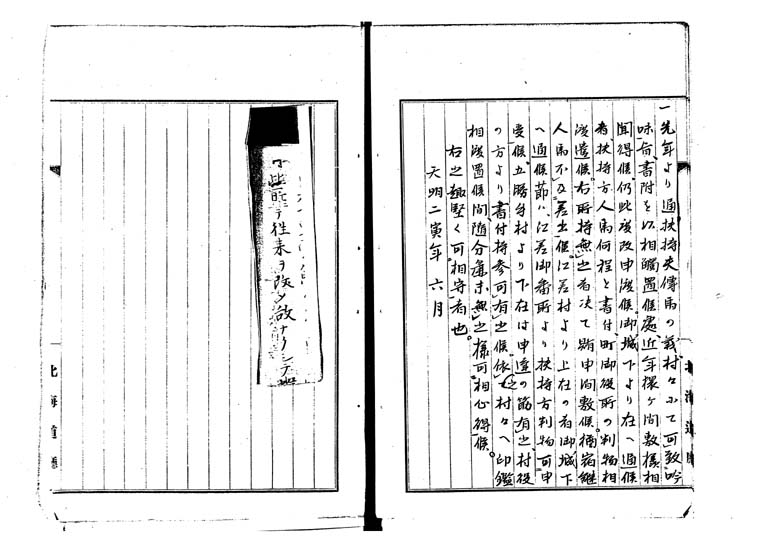 一先年より通扶持夫傳馬の義村々ニ而可致吟
味旨書附を以相觸置候處近年猥ケ間敷様相
聞得候仍此後改申渡候御城下より在へ通候
者扶持方人馬何程と書付町御役所の判物相
渡遣候右所持無之者決て賄申間敷候獨宿繼
人馬不及差出候江差村より上在の者御城下
へ通候節ハ江差御番所より扶持方判物可申
受候五勝手村より下在は申達の筋有之村役
の方より書付持参可有之候依之村々へ印鑑
相渡置候間随分麁末無之様可相心得候。
右之趣堅く可相守者也。
天明二寅年六月
此所ヲ往来ヲ改メ
北海道廳
北海道廳